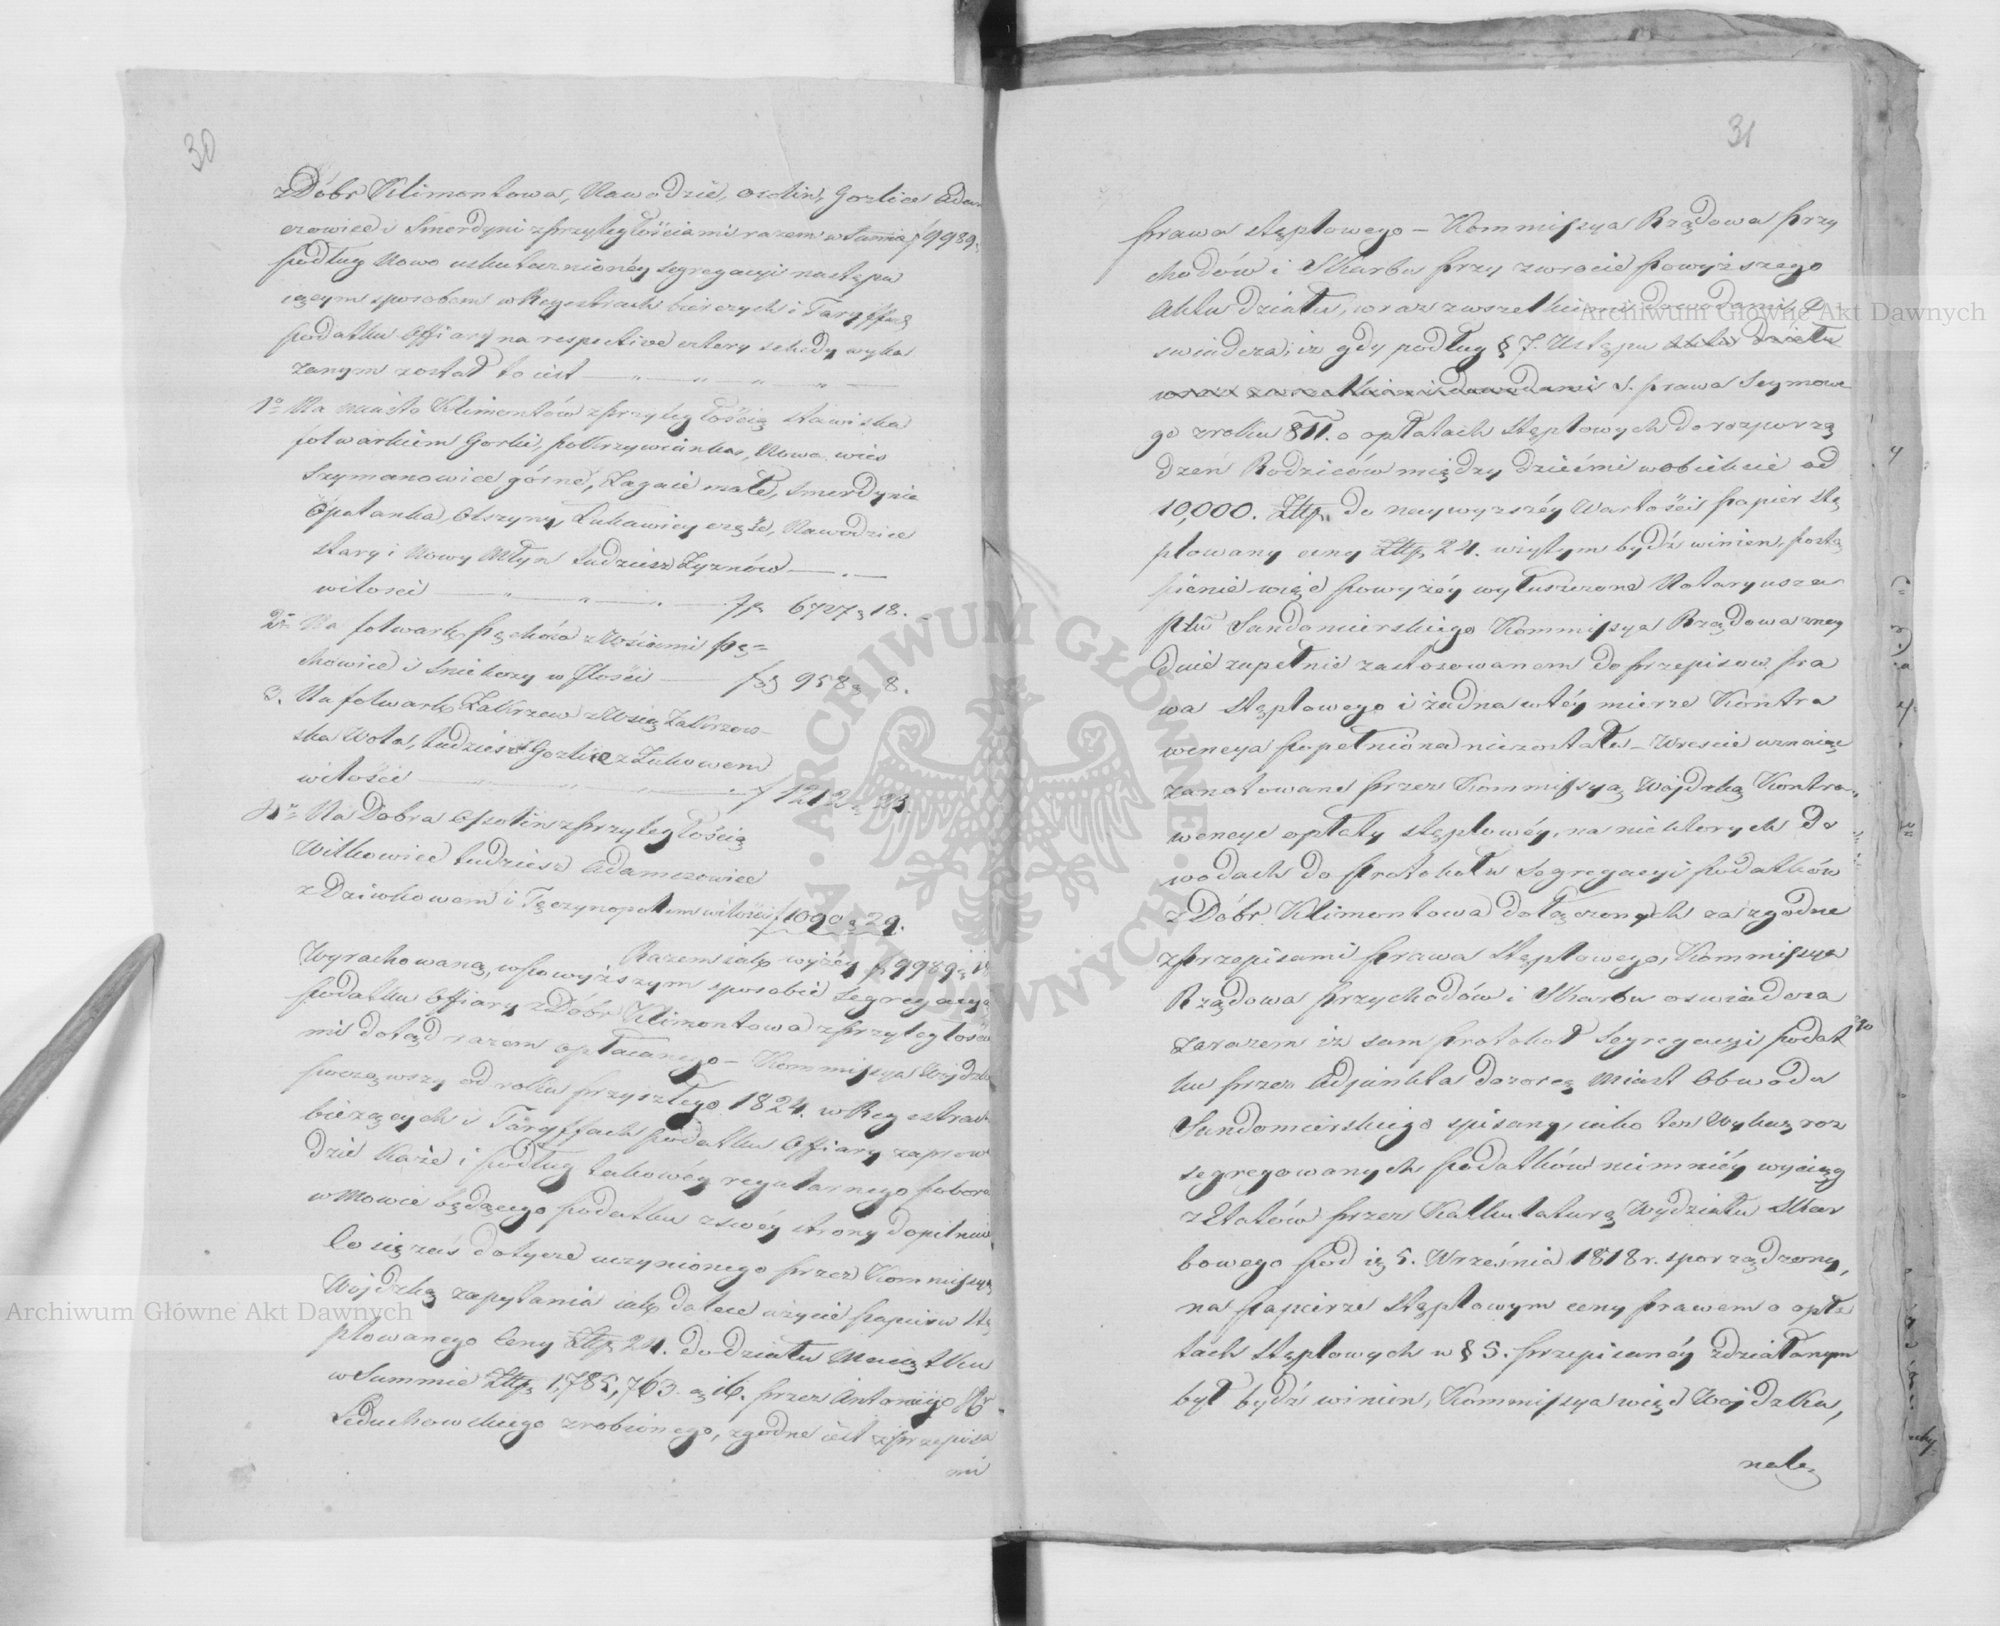 30
z Dóbr Klimontowa, Nawodzie, Ossolin, Gorlice Adam
czowice i Smerdyni z przyległościami razem w summie f 9989
podług nowo uskutecznionéy segregacyi następu
iącym sposobem w Rejestrach bierczych i Taryffach
podatku Offiary na respective cztery schedy wyka
zanym został to iest
1o Na miasto Klimontów z przyległością stawiska
folwarkiem Gorki, pokrzywianka, Nowa wieś
Szymanowice górne, Zagaie małe, Smerdynia
Opatanka, Olszyny, Łukawicy część, Nawodzice
stary i Nowy Młyn tudzież Zyznów
witości fp 6727 g 18.
2o Na folwark Pęchów z Wsiami Pę=
chowice i Sniekozy w Ilości f 958 g 8.
3. Na folwark Zakrzew z Wsią Zakrzow
ska Wola, tudzież Gorlice z Zukowem
witości f 1212 g 23.
4o Na Dobra Ossolin z przyległością
Witkowice tudzież Adamczowice
z Dziwkowem i Tęczynopolem witości f 1090 g 29.
Razem iak wyżéy f 9989 g 18
Wyrachowaną, w powyższym sposobie Segregacyą
podatku Offiary z Dóbr Klimontowa z przyległościa
mi dotąd razem opłacanego – Kommissya Wojdzka
począwszy od roku przyszłego 1824. w Regestrach
bieżących i Taryffach podatku Offiary zaprow
dzić każe i podług takowéy regularnego poboru
w Mowie będącego podatku z swéy strony dopilnuie
Co się zaś dotycze uczynionego przez Kommissyą
Wojdzką zapytania iak dalece użycie papieru stę
plowanego Ceny Złtp. 24. do działu Maiątku
w Summie Złtp. 1,785,763. g 16. przez Antoniego Hr.
Leduchowskiego zrobionego, zgodne iest z przepisa
mi
31
prawa stęplowego – Kommissya Rządowa Przy
chodów i Skarbu przy zwrocie powyższego
Aktu działu, wraz z wszelkiemi dowodami, o
swiadcza, iż gdy podług § 7. Ustępu
S. prawa Seymowe
go z roku 811. o opłatach stęplowych do rozporzą
dzeń Rodziców między dziećmi w obiekcie od
10,000. Złtp. do naywyższéy Wartości papier stę
plowany ceny Złtp. 24. użytym bydź winien, postą
pienie więc powyżéy wyłuszczone Notaryusza
Pttu Sandomirskiego Kommissya Rządowa znay
duie zupełnie zastosowanem do przepisow pra
wa stęplowego i żadna w téy mierze Kontra
wencya popełniona niezostała – Wreście uznaiąc
zanotowane przez Kommissyą Wojdzką Kontra
wencye opłaty stęplowéy, na niektorych do
wodach do protokołu Segregacyi podatków
z Dóbr Klimontowa dołączonych za zgodne
z przepisami prawa Stęplowego, Kommissya
Rządowa Przychodów i Skarbu oswiadcza
zarazem iż sam protokoł Segregacyi podat
ku przez Adjunkta dozorcę Miast Obwodu
Sandomirskiego spisany, iako ten Wykaz roz
segregowanych podatków niemniéy wyciąg
z Etatów przez Kalkulaturę Wydziału Skar
bowego pod ię 5. Września 1818 r. sporządzony,
na papierze stęplowym ceny prawem o opła
tach stęplowych w § 5. przepisanéy zdziałanym
był bydź winien, Kommissya więc Wojdzka,
nale
Archiwum Główne Akt Dawnych
Archiwum Główne Akt Dawnych
ARCHIWUM GŁÓWNE AKT DAWNYCH